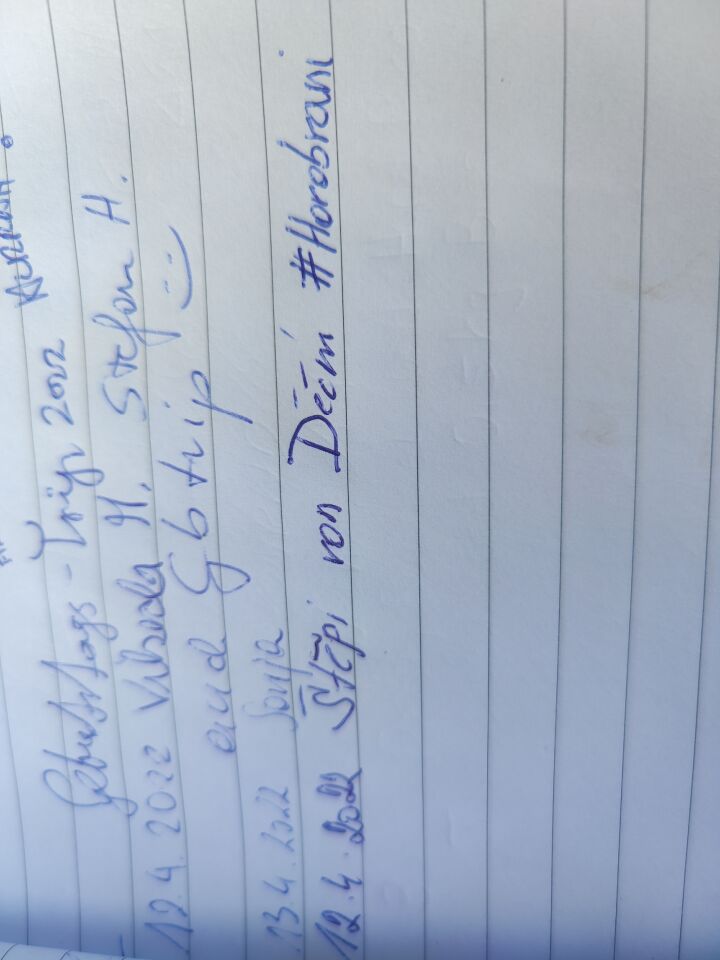 Geburtstags-Trip 2022
12.4.2022 H. Stefan H.
Gb trip :)
13.4.2022 Sonja
12.4.2022 Štěpi von Děčín #Horobrani